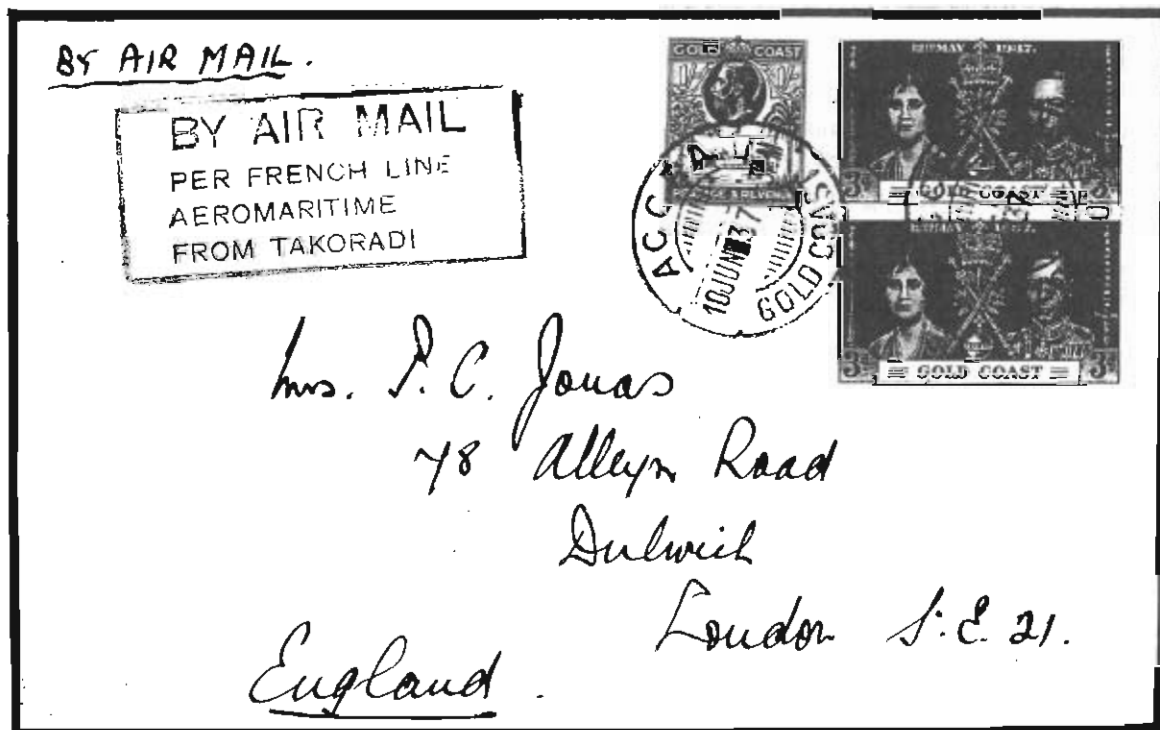 BY AIR MAIL.
BY AIR MAIL
PER FRENCH LINE
AEROMARITIME
FROM TAKORADI
GOLD COAST
1/-
POSTAGE & REVENUE
ACCRA
10 JUN 37
GOLD COAST
12 MAY 1937.
3D
GOLD COAST
3D
12 MAY 1937.
3D
GOLD COAST
3D
Mrs. P. C. Jonas
78 Alleyn Road
Dulwich
London S.E. 21.
England.